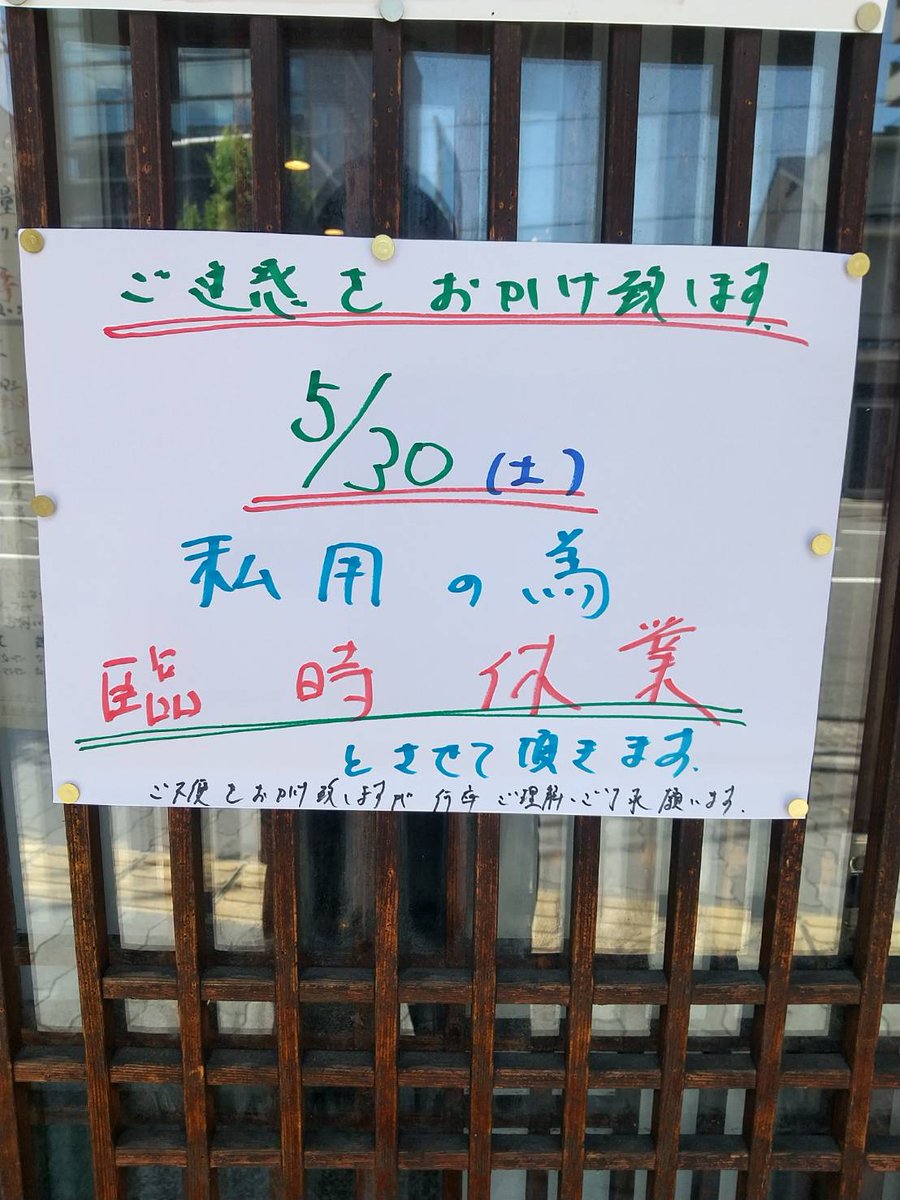 ご迷惑をおかけ致します.
5/30(土)
私用の為
臨時休業
とさせて頂きます.
ご不便をおかけ致しますが 何卒 ご理解・ご了承 願います.